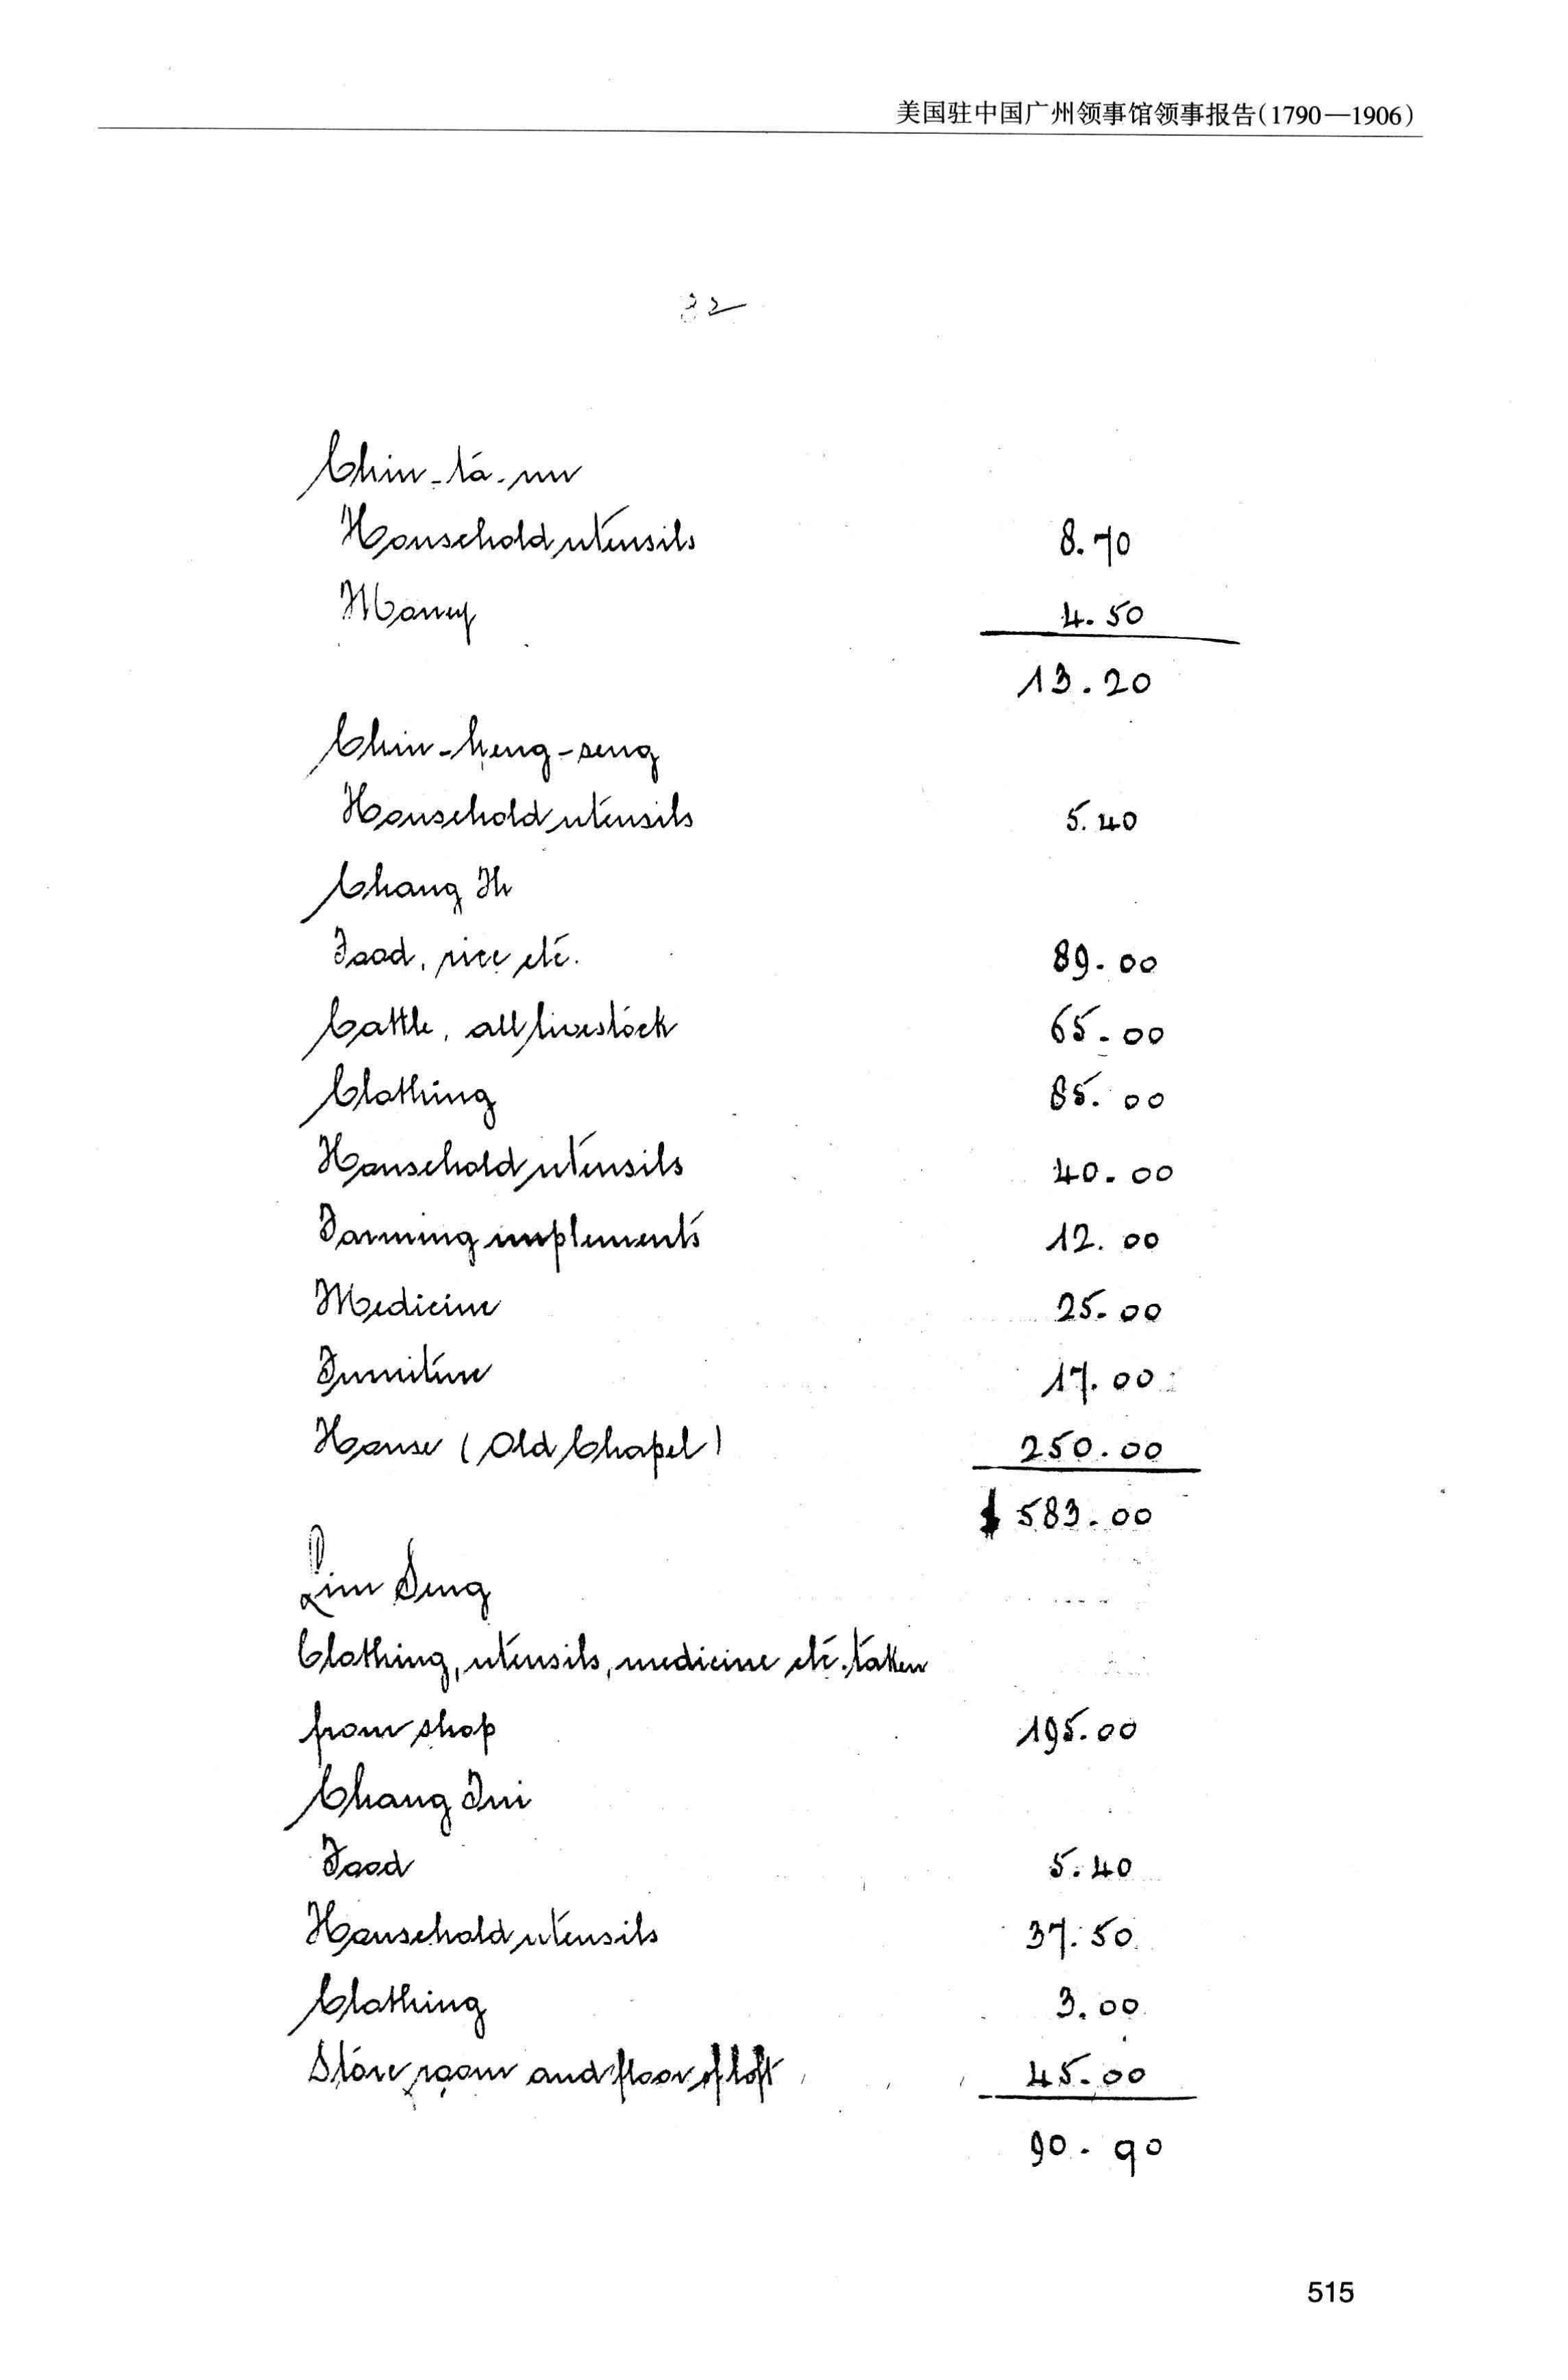 美国驻中国广州领事馆领事报告(1790—1906)
32
Chin-ta-nu
Household utensils 8.70
Money 4.50
13.20
Chin-heng-seng
Household utensils 5.40
Chang
Food, rice etc. 89.00
Cattle, all livestock 65.00
Clothing 85.00
Household utensils 40.00
Farming implements 12.00
Medicine 25.00
Furniture 17.00
House (Old Chapel) 250.00
$583.00
Lim Seng
Clothing, utensils, medicine etc. taken
from shop 195.00
Chang
Food 5.40
Household utensils 37.50
Clothing 3.00
Store room and floor of loft 45.00
90.90
515